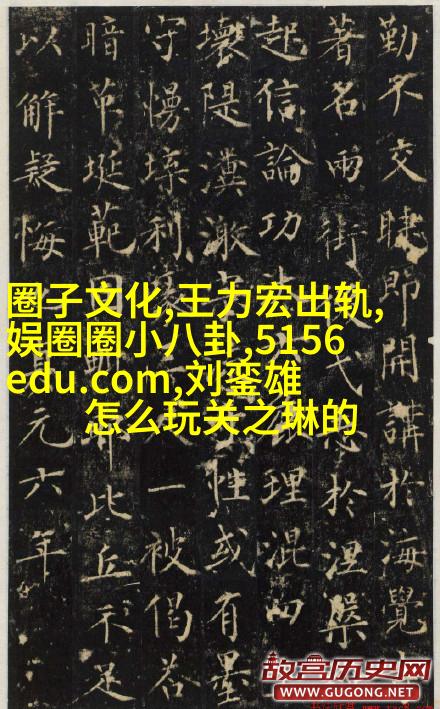 勤不交睫即開講於海覺
著名兩街於涅槃
起信論功理混四
壞隄漠性或有墨
守慢利一被偈若
暗埏範此丘不足
以解疑悔元六年
圈子文化,王力宏出轨,
娱圈圈小八卦,5156
edu.com,刘銮雄
怎么玩关之琳的
故宫历史网
WWW.GUGONG.NET